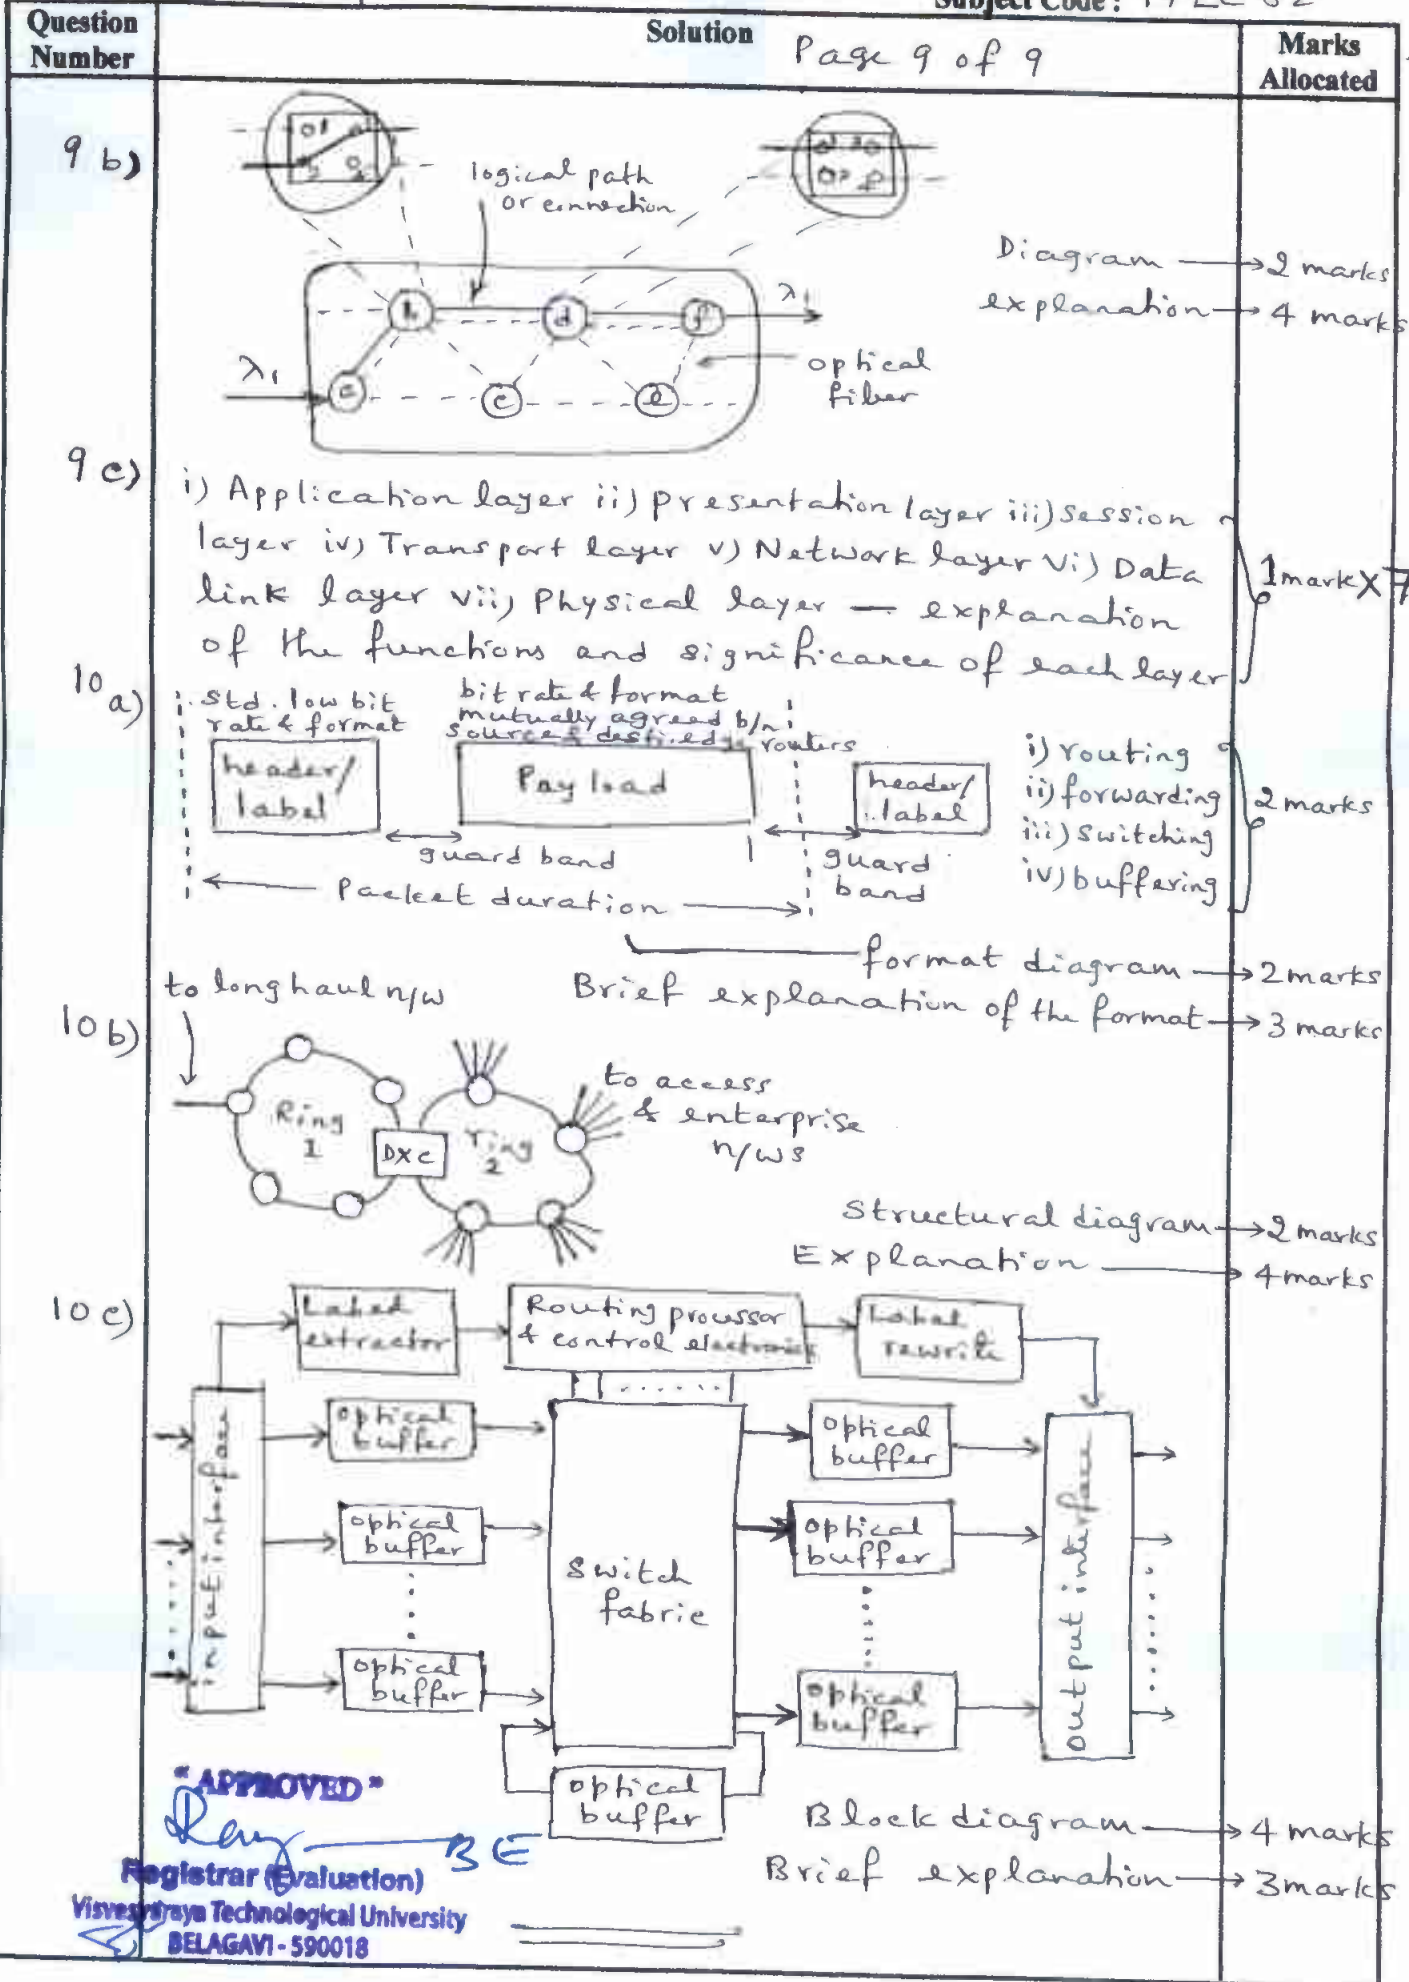 Subject Code :
Question Number
Solution
Page 9 of 9
Marks Allocated
9 b)
logical path
or connection
Diagram → 2 marks
explanation → 4 marks
b
d
f
λ1
λ1
a
c
e
optical
fiber
9 c)
i) Application layer ii) presentation layer iii) session
layer iv) Transport layer v) Network layer vi) Data
link layer vii) Physical layer — explanation
of the functions and significance of each layer
1 mark X 7
10 a)
std. low bit
rate & format
bit rate & format
mutually agreed b/n
source & dest. edge routers
header/
label
Pay load
header/
label
guard band
guard
band
Packet duration
i) routing
ii) forwarding
iii) switching
iv) buffering
2 marks
format diagram → 2 marks
Brief explanation of the format → 3 marks
10 b)
to long haul n/w
Ring
1
DXC
ring
2
to access
& enterprise
n/ws
Structural diagram → 2 marks
Explanation → 4 marks
10 c)
Label
extractor
Routing processor
& control electronics
Label
rewrite
input interface
optical
buffer
optical
buffer
optical
buffer
Switch
fabric
optical
buffer
optical
buffer
optical
buffer
output interface
optical
buffer
Block diagram → 4 marks
Brief explanation → 3 marks
"APPROVED"
BE
Registrar (Evaluation)
Visvesvaraya Technological University
BELAGAVI - 590018